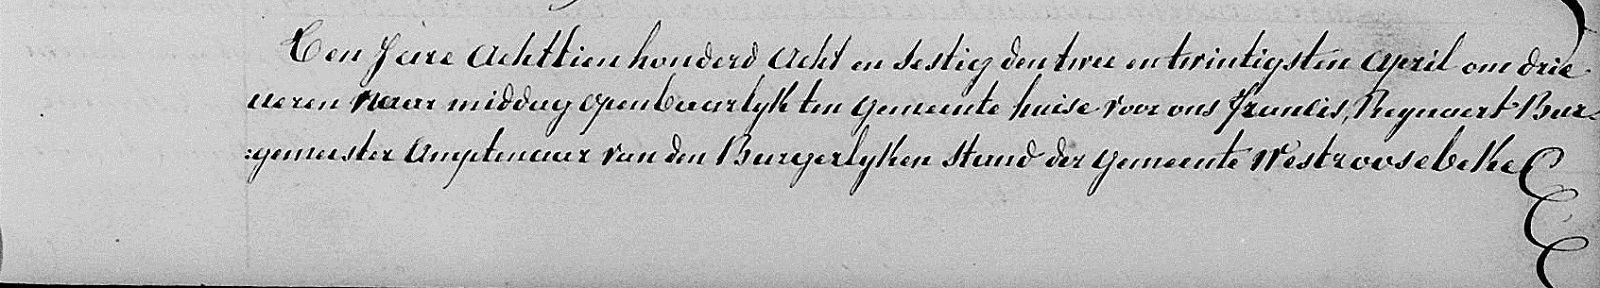 Ten Jaire Achttien honderd Acht en Sestig den twee en twintigsten April om drie
ueren Naar middag openbaarlyk ten Gemeente huise voor ons Francis, Reynaert Bur-
:gemeester Amptenaar van den Burgerlyken Stand der Gemeente Westroosebeke